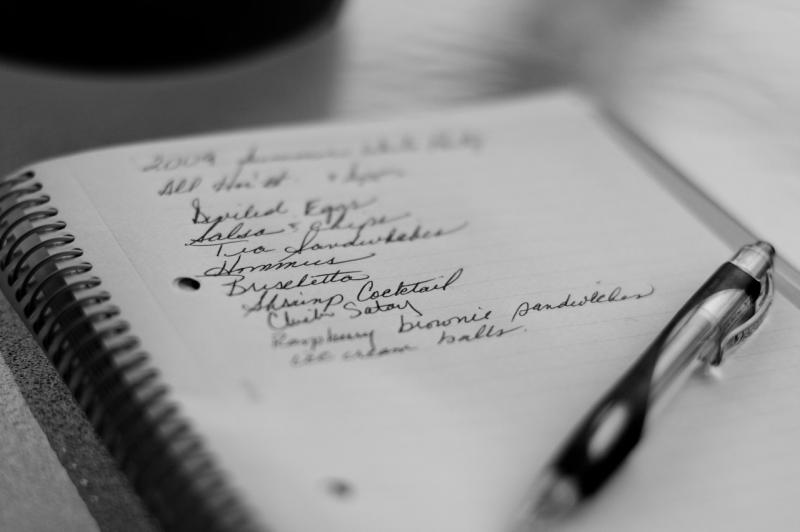 2009 Summer White Party
All
Deviled Eggs
Salsa & Chips
Tea Sandwhiches
Hommus
Brushetta
Shrimp Cocktail
Satay
Raspberry brownie sandwiches
ice cream balls.